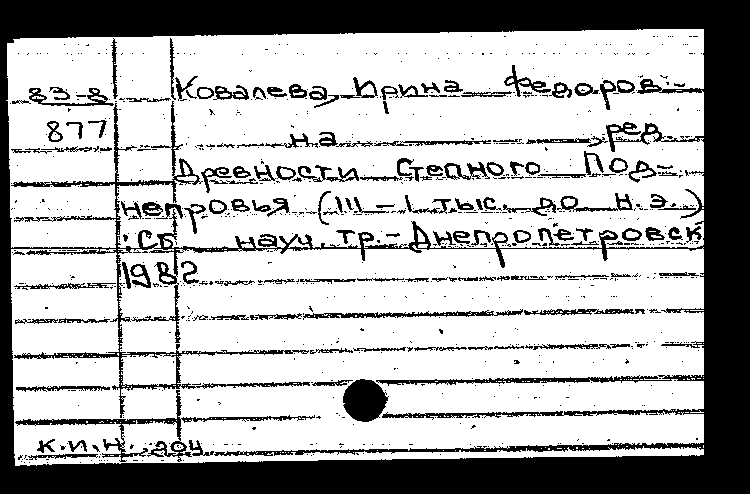 83-8 Ковалева, Ирина Федоров-
877 на , ред
Древности Степного Под-
непровья (III – I тыс. до н.э.)
: Сб науч. тр. – Днепропетровск
1982
к.и.н. 204